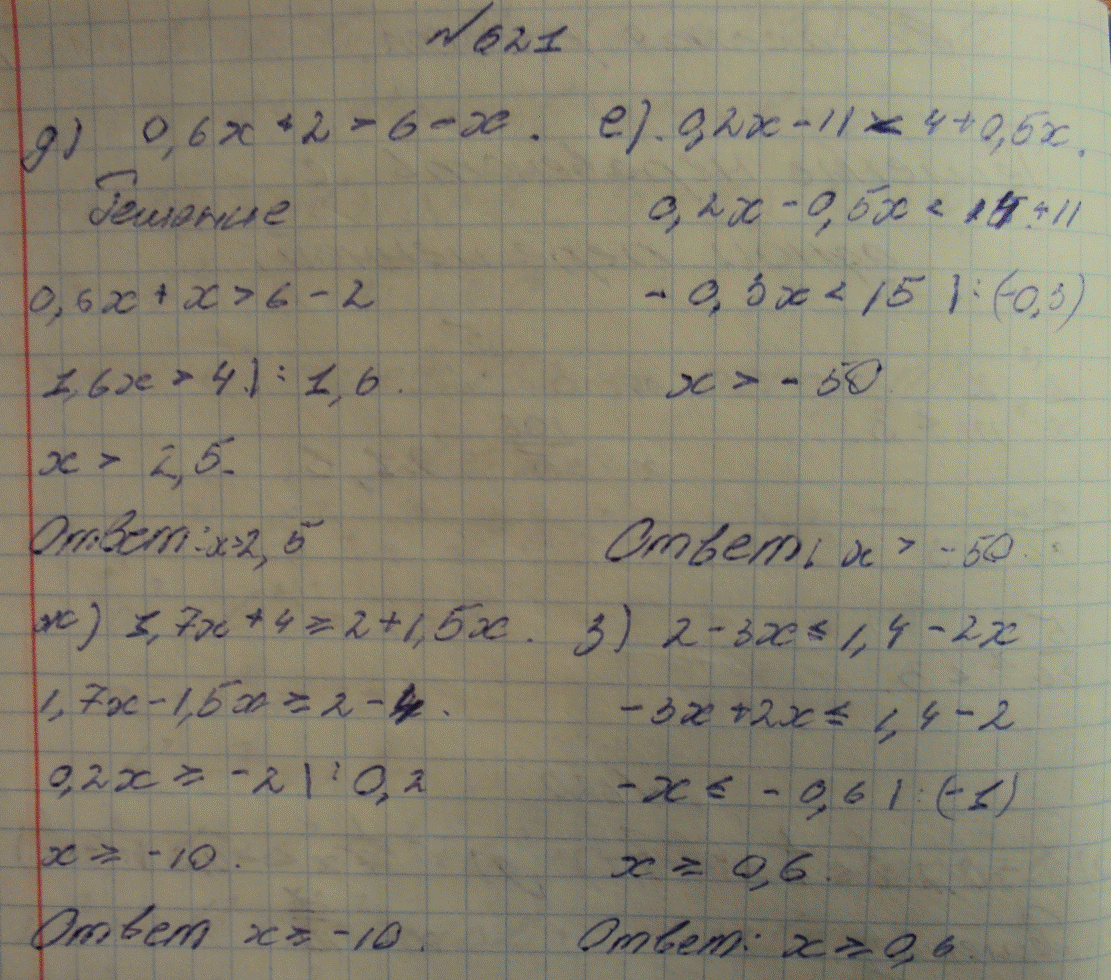 №621
д) 0,6x + 2 > 6 - x.
Решение
0,6x + x > 6 - 2
1,6x > 4 | : 1,6.
x > 2,5.
Ответ: x>2,5
е). 0,2x - 11 < 4 + 0,5x.
0,2x - 0,5x < 4 + 11
- 0,3x < 15 | : (-0,3)
x > - 50
Ответ: x > -50.
ж) 1,7x + 4 ≥ 2 + 1,5x.
1,7x - 1,5x ≥ 2 - 4.
0,2x ≥ -2 | : 0,2
x ≥ -10.
Ответ x ≥ -10.
з) 2 - 3x ≤ 1,4 - 2x
-3x + 2x ≤ 1,4 - 2
-x ≤ - 0,6 | : (-1)
x ≥ 0,6.
Ответ: x ≥ 0,6.